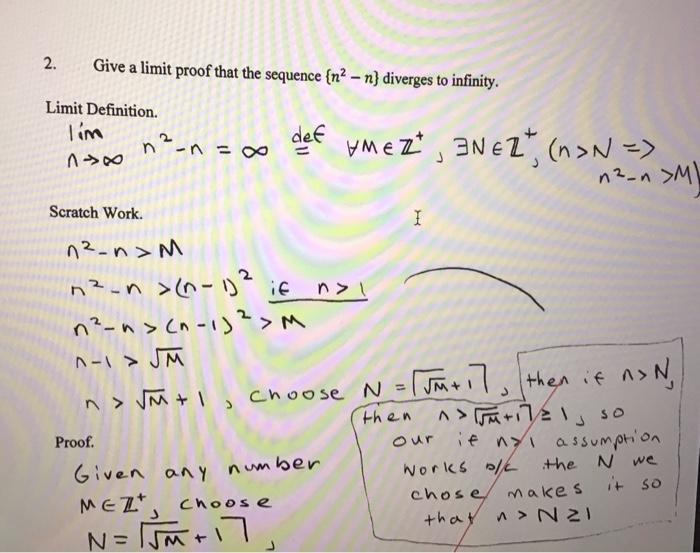 2. Give a limit proof that the sequence {n² – n} diverges to infinity.
Limit Definition.
lim n→∞ n²-n = ∞ def= ∀M∈Z⁺, ∃N∈Z⁺, (n>N =>
n²-n >M)
Scratch Work.
n²-n > M
n²-n >(n-1)² if n>1
n²-n > (n-1)² > M
n-1 > √M
n > √M + 1, choose N = ⌈√M+1⌉, then if n>N,
then n>⌈√M+1⌉≥1, so
our if n>1 assumption
works b/c the N we
chose makes it so
that n > N≥1
Proof.
Given any number
M∈Z⁺, choose
N = ⌈√M+1⌉,